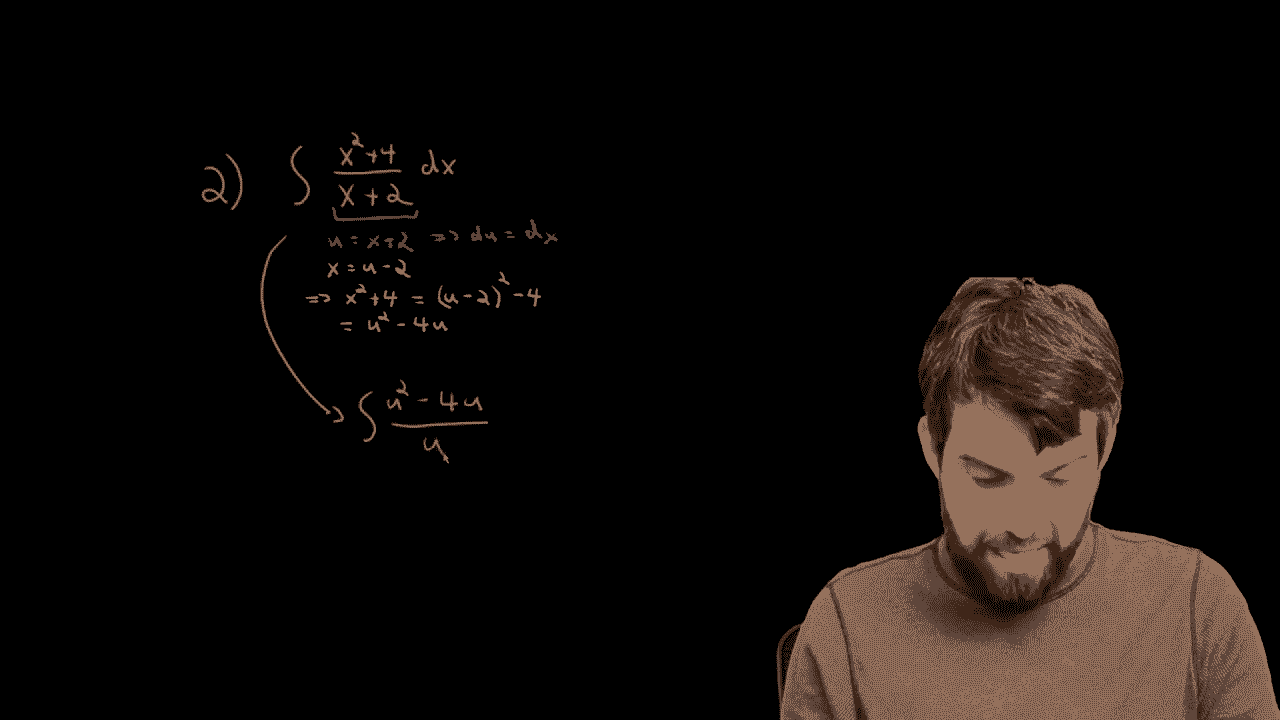 2) ∫ x²+4 / x+2 dx
u = x+2 ⇒ du = dx
x = u-2
⇒ x²+4 = (u-2)² - 4
= u² - 4u
∫ u² - 4u / u